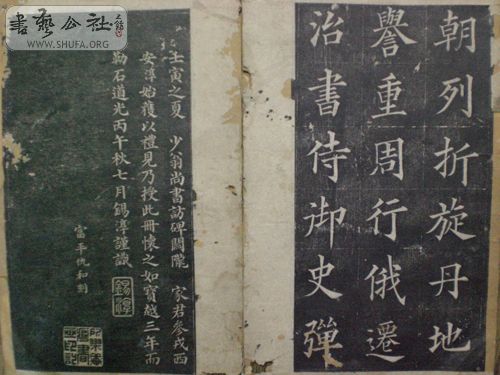 朝列折旋丹地
譽重周行俄遷
治書侍御史彈
壬寅之夏 少翁尚書訪碑關隴 家君參戎西
安淳始獲以禮見乃授此冊懷之如寶越三年而
勒石道光丙午秋七月錫淳謹識
富平仇和刻
書藝公社
WWW.SHUFA.ORG